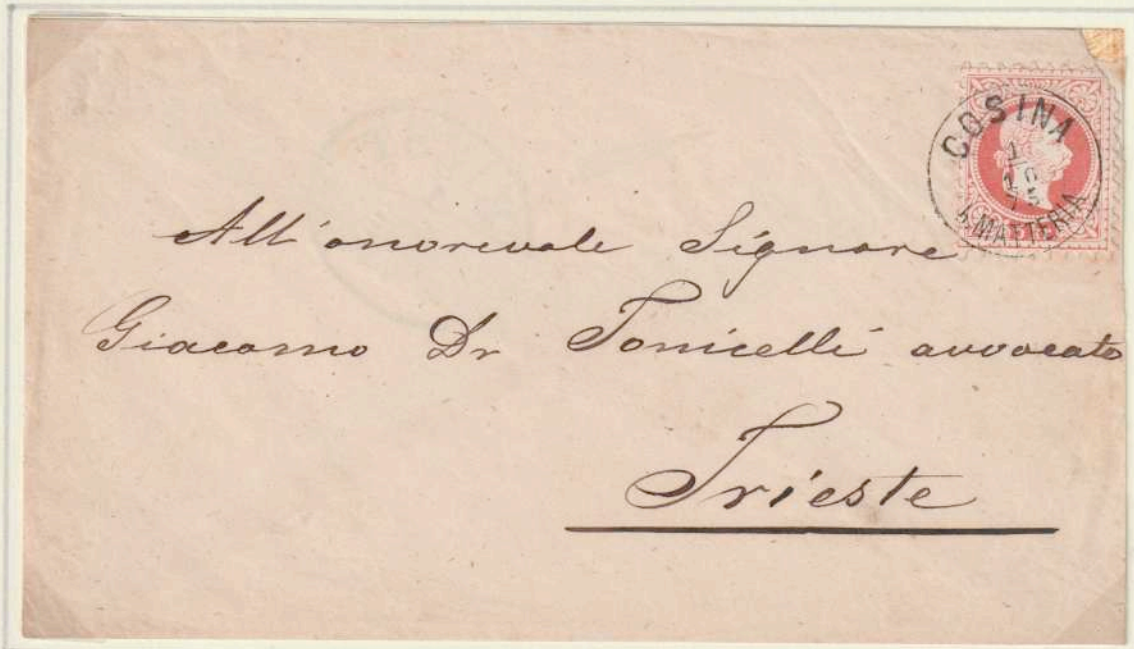 COSINA
MATTERIA
All' onorevole Signore
Giacomo Dr Tonicelli avvocato
Trieste